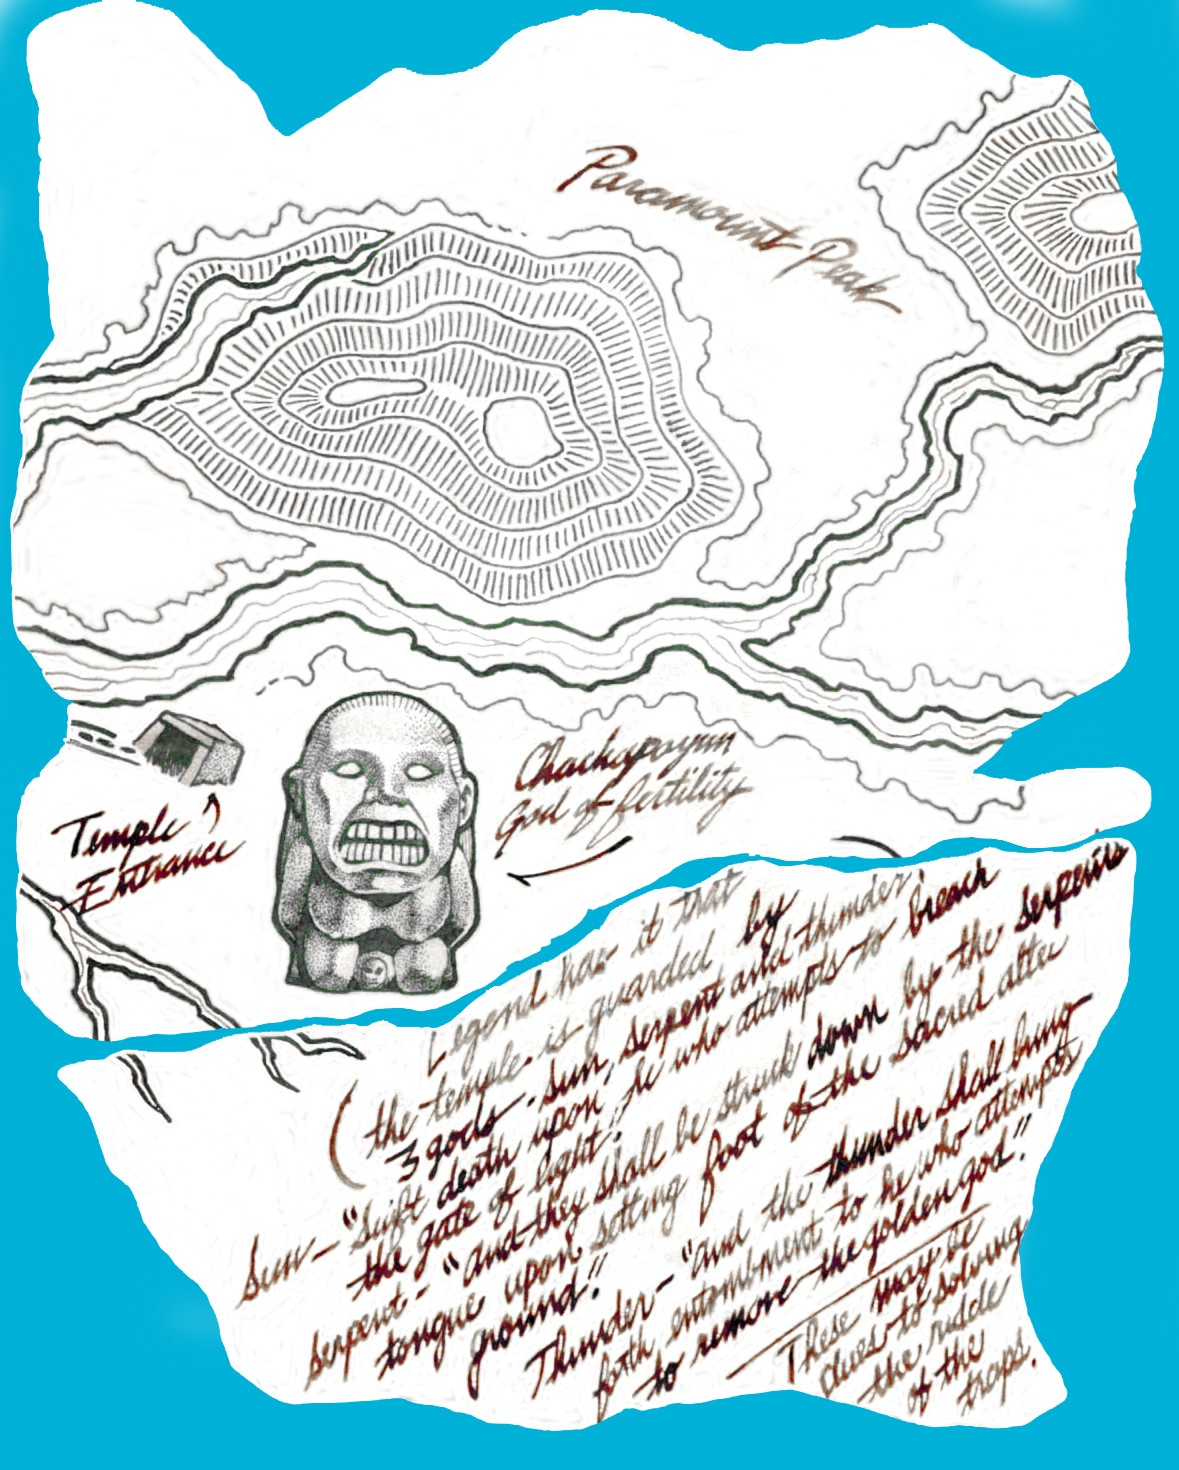 Paramount Peak
Temple
Entrance
Chachapoyan
God of fertility
Legend has it that
the temple is guarded by
3 gods - sun, serpent and thunder;
Sun - "Swift death upon he who attempts to breach
the gate of light;
serpent - "and they shall be struck down by the serpents
tongue upon setting foot of the sacred alter
ground."
Thunder - "and the thunder shall bring
forth entombment to he who attempts
to remove the golden god."
These may be
clues to solving
the riddle
of the
traps.